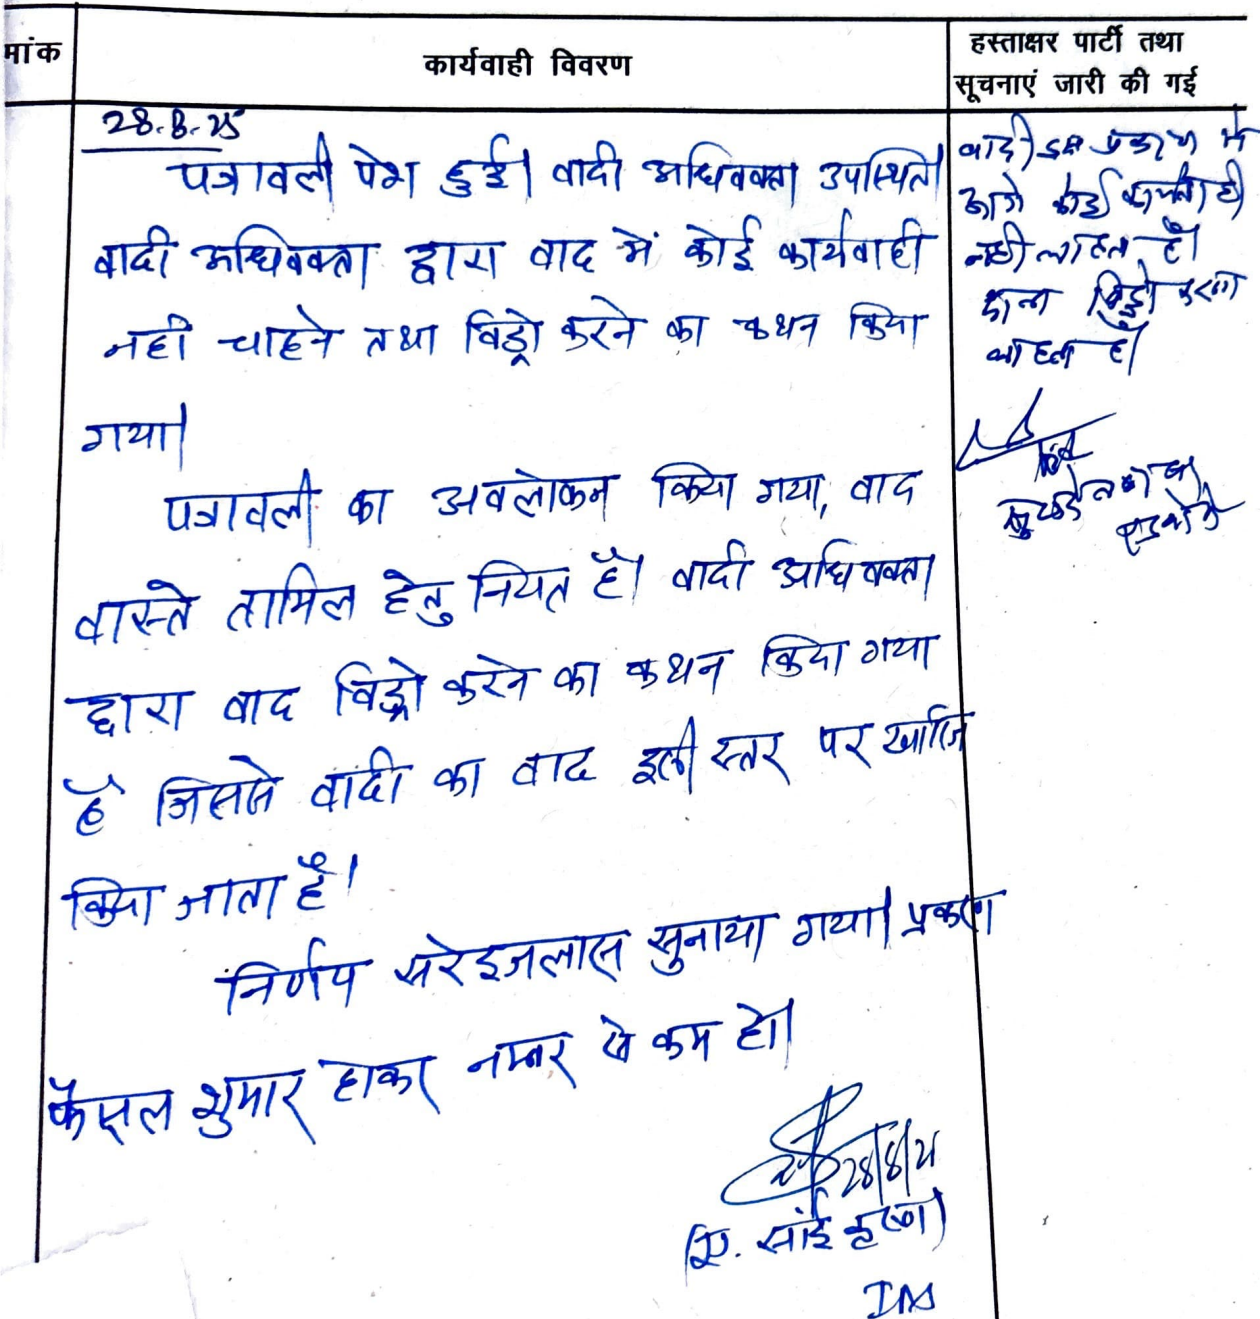 मांक
कार्यवाही विवरण
हस्ताक्षर पार्टी तथा
सूचनाएं जारी की गई
28.8.25
पत्रावली पेश हुई। वादी अधिवक्ता उपस्थित।
वादी अधिवक्ता द्वारा वाद में कोई कार्यवाही
नही चाहने तथा विड्रो करने का कथन किया
गया।
पत्रावली का अवलोकन किया गया, वाद
वास्ते तामिल हेतु नियत है। वादी अधिवक्ता
द्वारा वाद विड्रो करने का कथन किया गया
है जिससे वादी का वाद इसी स्तर पर खारिज
किया जाता है।
निर्णय सरेइजलास सुनाया गया। प्रकरण
फैसल शुमार होकर नम्बर से कम हो।
28/8/25
(ए. साई कृष्णा)
IAS
वादी इस प्रकरण में
आगे कोई कार्यवाही
नही चाहता है।
विड्रो करना
चाहता है।